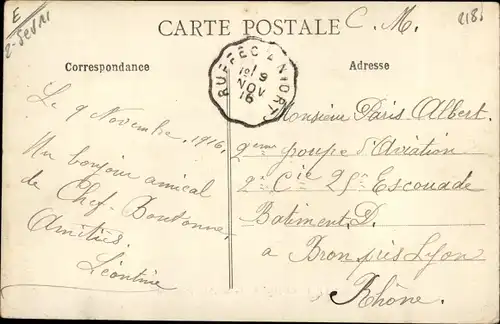 E
2-Sevres
CARTE POSTALE
C. M.
218
RUFFEC A NIORT
1º 9
NOV
16
Correspondance
Adresse
Le 9 Novembre, 1916,
Un bonjour amical
de Chef-Boutonne,
Amitiés.
Léontine
Monsieur Paris Albert.
2ème groupe d'Aviation
2e Cie 25e Escouade
Batiment. D.
a Bron près Lyon
Rhône.